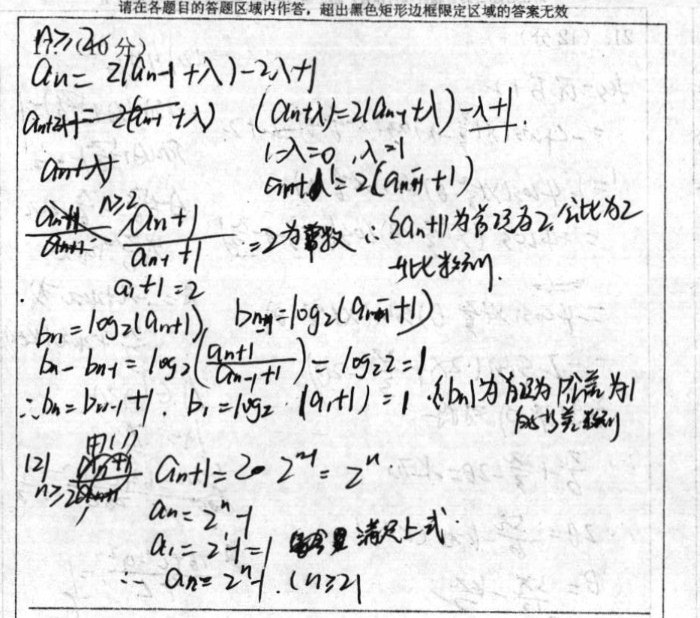 请在各题目的答题区域内作答，超出黑色矩形边框限定区域的答案无效
n≥2
aₙ = 2(aₙ₋₁+λ)-2λ+1
(aₙ+λ)=2(aₙ₋₁+λ)-λ+1.
aₙ+λ
1-λ=0, λ=1
aₙ+1=2(aₙ₋₁+1)
n≥2 (aₙ+1)/(aₙ₋₁+1) =2为常数 ∴{aₙ+1}为首项为2, 公比为2
等比数列.
a₁+1=2
bₙ=log₂(aₙ+1), bₙ₋₁=log₂(aₙ₋₁+1)
bₙ-bₙ₋₁=log₂((aₙ+1)/(aₙ₋₁+1))=log₂2=1
∴bₙ=bₙ₋₁+1. b₁=log₂(a₁+1)=1 {bₙ}为首项为1公差为1
的等差数列
由(1)
(2) aₙ+1=2·2ⁿ⁻¹=2ⁿ
n≥2
aₙ=2ⁿ-1
a₁=2¹-1=1 满足上式.
∴aₙ=2ⁿ-1.(n≥2)